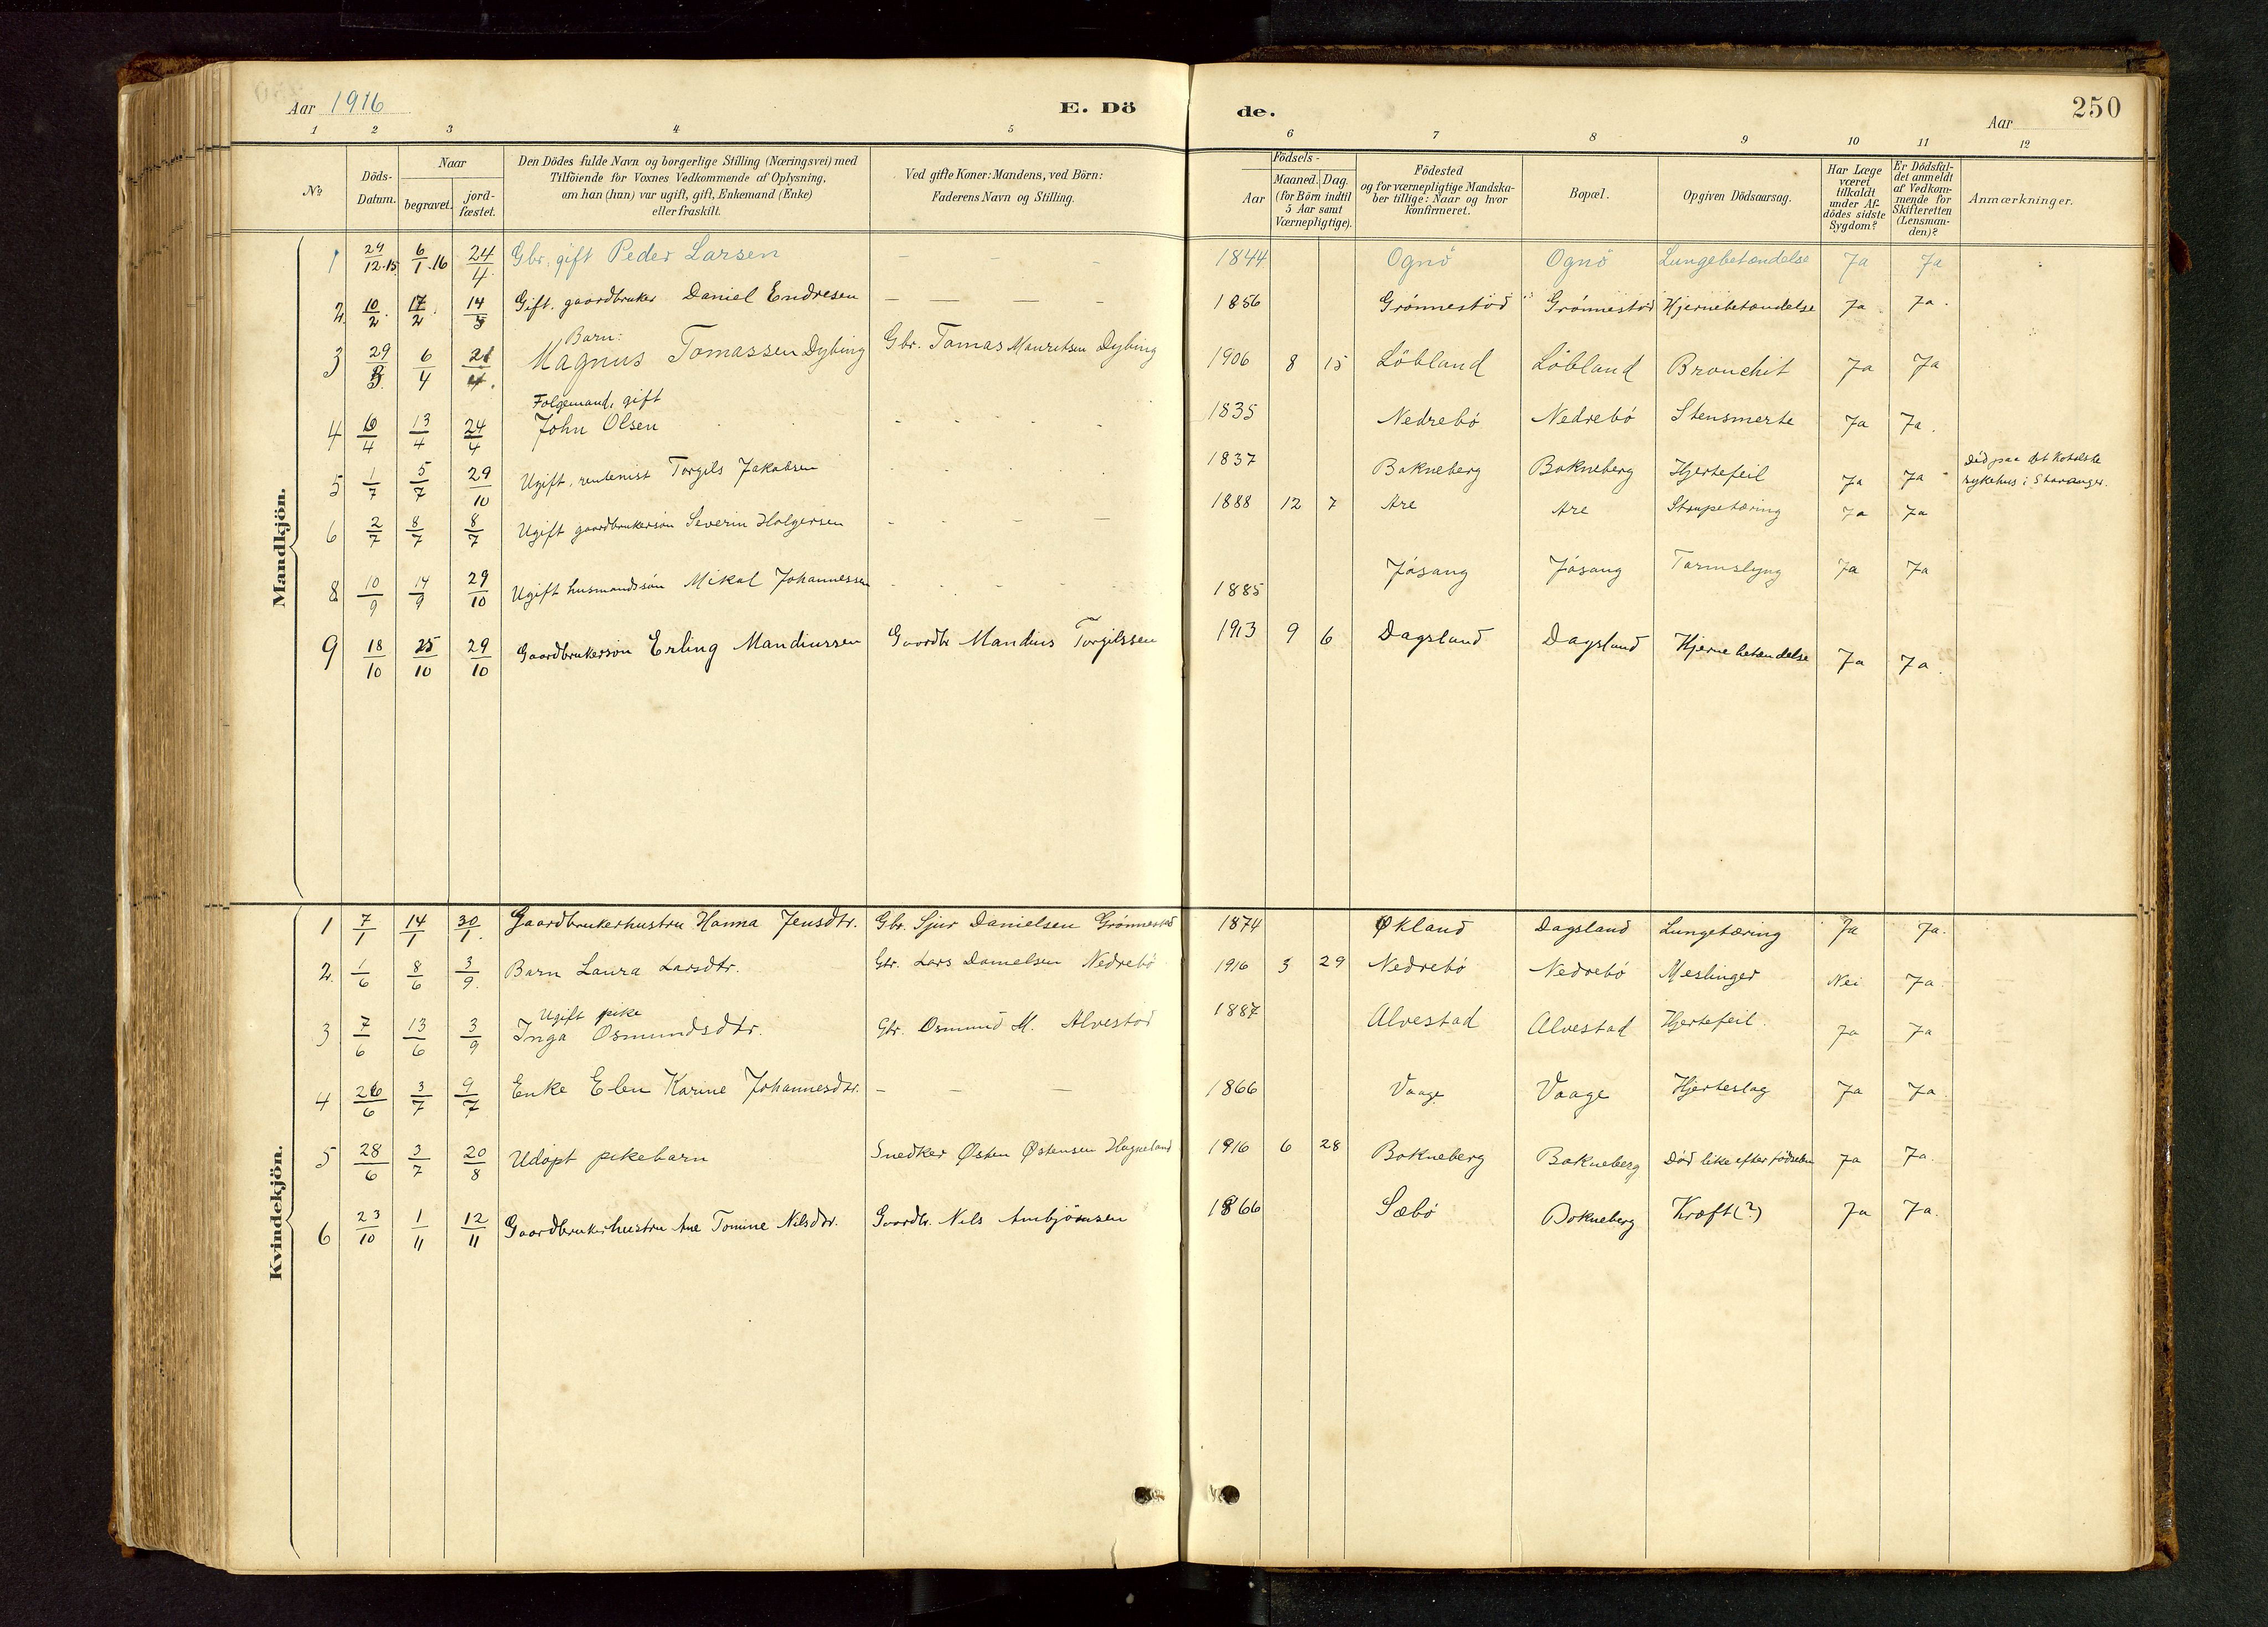 Aar 1916 E. Dö de. Aar 250
1 2 3 4 5 6 7 8 9 10 11 12
№ Döds-Datum. Naar begravet. jord-fæstet. Den Dödes fulde Navn og borgerlige Stilling (Næringsvei) med Tilföiende for Voxnes Vedkommende af Oplysning, om han (hun) var ugift, gift, Enkemand (Enke) eller fraskilt. Ved gifte Koner: Mandens, ved Börn: Faderens Navn og Stilling. Födsels- Aar Maaned. Dag. (for Börn indtil 5 Aar samt Værnepligtige). Födested og for værnepligtige Mandska-ber tillige: Naar og hvor konfirmeret. Bopæl. Opgiven Dödsaarsag. Har Læge været tilkaldt under Af-dödes sidste Sygdom? Er Dödsfal-det anmeldt af Vedkom-mende for Skifteretten (Lensman-den)? Anmærkninger.
Mandkjön.
1 29/12.15 6/1.16 24/4. Gbr. gift Peder Larsen – – – 1844 Ognö Ognö Lungebetændelse Ja Ja
2. 10/2. 17/2. 14/3 Gift. gaardbruker Daniel Endresen – – – – 1856 Grönnestöd Grönnestöd Hjernebetændelse Ja Ja.
Barn:
3 29/3. 6/4 21/4. Magnus Tomassen Dybing Gbr. Tomas Mauritsen Dybing 1906 8 15 Löbland Löbland Bronchit Ja Ja
Folgemand, gift
4 6/4 13/4 24/4 John Olsen - - - - 1835 Nedrebö Nedrebö Stensmerte Ja Ja.
5 1/7 5/7 29/10 Ugift, rentenist Torgils Jakobsen - - - - 1837 Bokneberg Bokneberg Hjertefeil Ja Ja Död paa det katolske
sykehus i Stavanger.
6 2/7 8/7 8/7 Ugift gaardbrukersön Severin Holgersen - - - - 1888 12 7 Are Are Strupetæring Ja Ja
8 10/9 14/9 29/10 Ugift husmandssön Mikal Johannessen - - - - 1885 Jösang Jösang Tarmslyng Ja Ja
9 18/10 25/10 29/10 Gaardbrukersön Erling Mandiussen Gaardbr Mandius Torgilssen 1913 9 6 Dagsland Dagsland Hjernebetændelse Ja Ja.
Kvindekjön.
1 7/1 14/1 30/1. Gaardbrukerhustru Hanna Jensdtr. Gbr. Sjur Danielsen Grönnestad 1874 Økland Dagsland Lungetæring Ja Ja.
2. 1/6 8/6 3/9. Barn Laura Larsdtr. Gbr. Lars Danielsen Nedrebö 1916 3 29 Nedrebö Nedrebö Meslinger Nei Ja.
Ugift pike
3 7/6 13/6 3/9 Inga Osmundsdtr. Gbr. Osmund M. Alvestad 1887 Alvestad Alvestad Hjertefeil. Ja Ja
4 26/6 3/7 9/7 Enke Elen Karine Johannesdtr. – – – 1866 Vaage Vaage Hjerteslag Ja Ja.
5 28/6 3/7 20/8 Udöpt pikebarn Snedker Østen Østensen Hagneland 1916 6 28 Bokneberg Bokneberg Död like efter födselen Ja Ja.
6 23/10 1/11 12/11 Gaardbrukerhustru Ane Tomine Nilsdtr. Gaardbr. Nils Ambjörnsen 1866 Sæbö Bokneberg Kræft(?) Ja Ja.